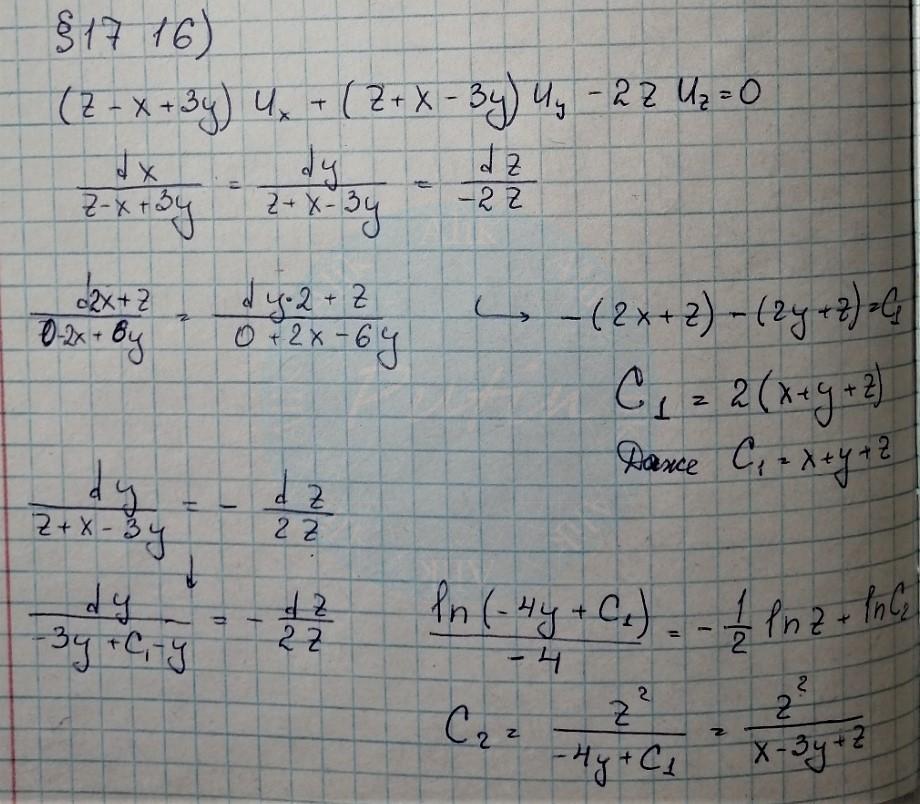 §17 16)
(z - x + 3y) Uₓ + (z + x - 3y) U_y - 2z U_z = 0
dx/(z - x + 3y) = dy/(z + x - 3y) = dz/(-2z)
d2x+z/(0-2x+6y) = dy·2+z/(0+2x-6y) ↳ -(2x+z) - (2y+z) = C₁
C₁ = 2(x+y+z)
Даже C₁ = x+y+z
dy/(z+x-3y) = - dz/(2z)
↓
dy/(-3y+C₁-y) = - dz/(2z) ln(-4y+C₁)/(-4) = - 1/2 ln z + ln C₂
C₂ = z²/(-4y+C₁) = z²/(x-3y+z)